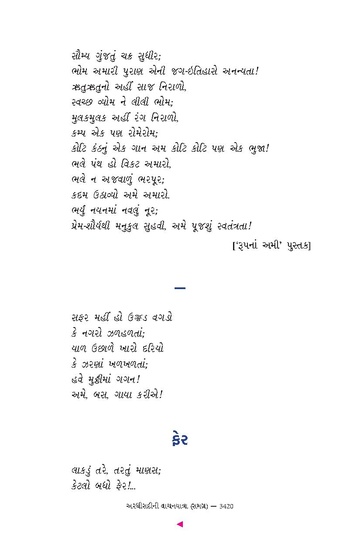 સૌમ્ય ગુંજતું ચક્ર સુધીર;
ભોમ અમારી પુરાણ એની જગ-ઇતિહાસે અનન્યતા!
ઋતુઋતુનો અહીં સાજ નિરાળો,
સ્વચ્છ વ્યોમ ને લીલી ભોમ;
મુલકમુલક અહીં રંગ નિરાળો,
કમ્પ એક પણ રોમેરોમ;
કોટિ કંઠનું એક ગાન અમ કોટિ કોટિ પણ એક ભુજા!
ભલે પંથ હો વિકટ અમારો,
ભલે ન અજવાળું ભરપૂર;
કદમ ઉઠાવ્યો અમે અમારો,
ભર્યું નયનમાં નવલું નૂર;
પ્રેમ-શૌર્યથી મનુકુલ સુહવી, અમે પૂજશું સ્વતંત્રતા!
[‘રૂપનાં અમી’ પુસ્તક]
—
સફર મહીં હો ઉજ્જડ વગડો
કે નગરો ઝળહળતાં;
યાળ ઉછાળે ખારો દરિયો
કે ઝરણાં ખળખળતાં;
હવે મુઠ્ઠીમાં ગગન!
અમે, બસ, ગાયા કરીએ!
ફેર
લાકડું તરે, તરતું માણસ;
કેટલો બધો ફેર!...
અરધીસદીની વાચનયાત્રા (સમગ્ર) — 3420
◀